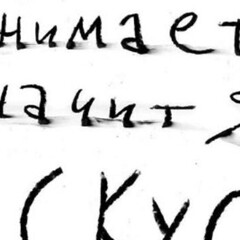 нимает
начит я
скус